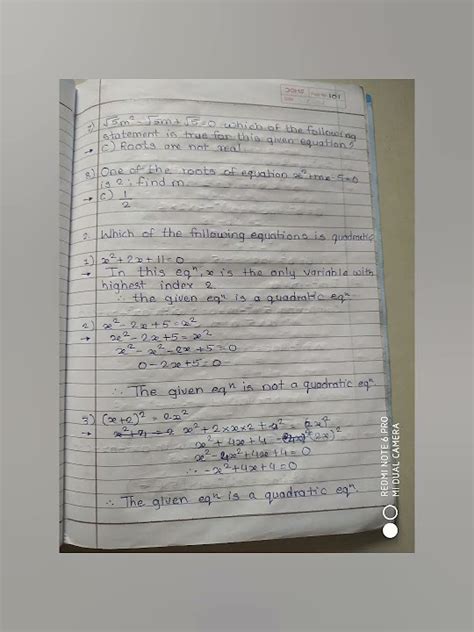 101
7) √5m² - √5m + √5 = 0 which of the following
statement is true for this given equation?
→ c) Roots are not real
8) One of the roots of equation x² + mx - 5 = 0
is 2; find m.
→ c) 1/2
2. Which of the following equations is quadratic
1) x² + 2x + 11 = 0
→ In this eqⁿ, x is the only variable with
highest index 2.
∴ the given eqⁿ is a quadratic eqⁿ
2) x² - 2x + 5 = x²
→ x² - 2x + 5 = x²
x² - x² - 2x + 5 = 0
0 - 2x + 5 = 0
∴ The given eqⁿ is not a quadratic eqⁿ
3) (x+2)² = 2x²
→ x² + 2 × x × 2 + 2² = 2x²
x² + 4x + 4 (2x)²
x² - 2x² + 4x + 4 = 0
∴ -x² + 4x + 4 = 0
∴ The given eqⁿ is a quadratic eqⁿ.
REDMI NOTE 6 PRO
MI DUAL CAMERA